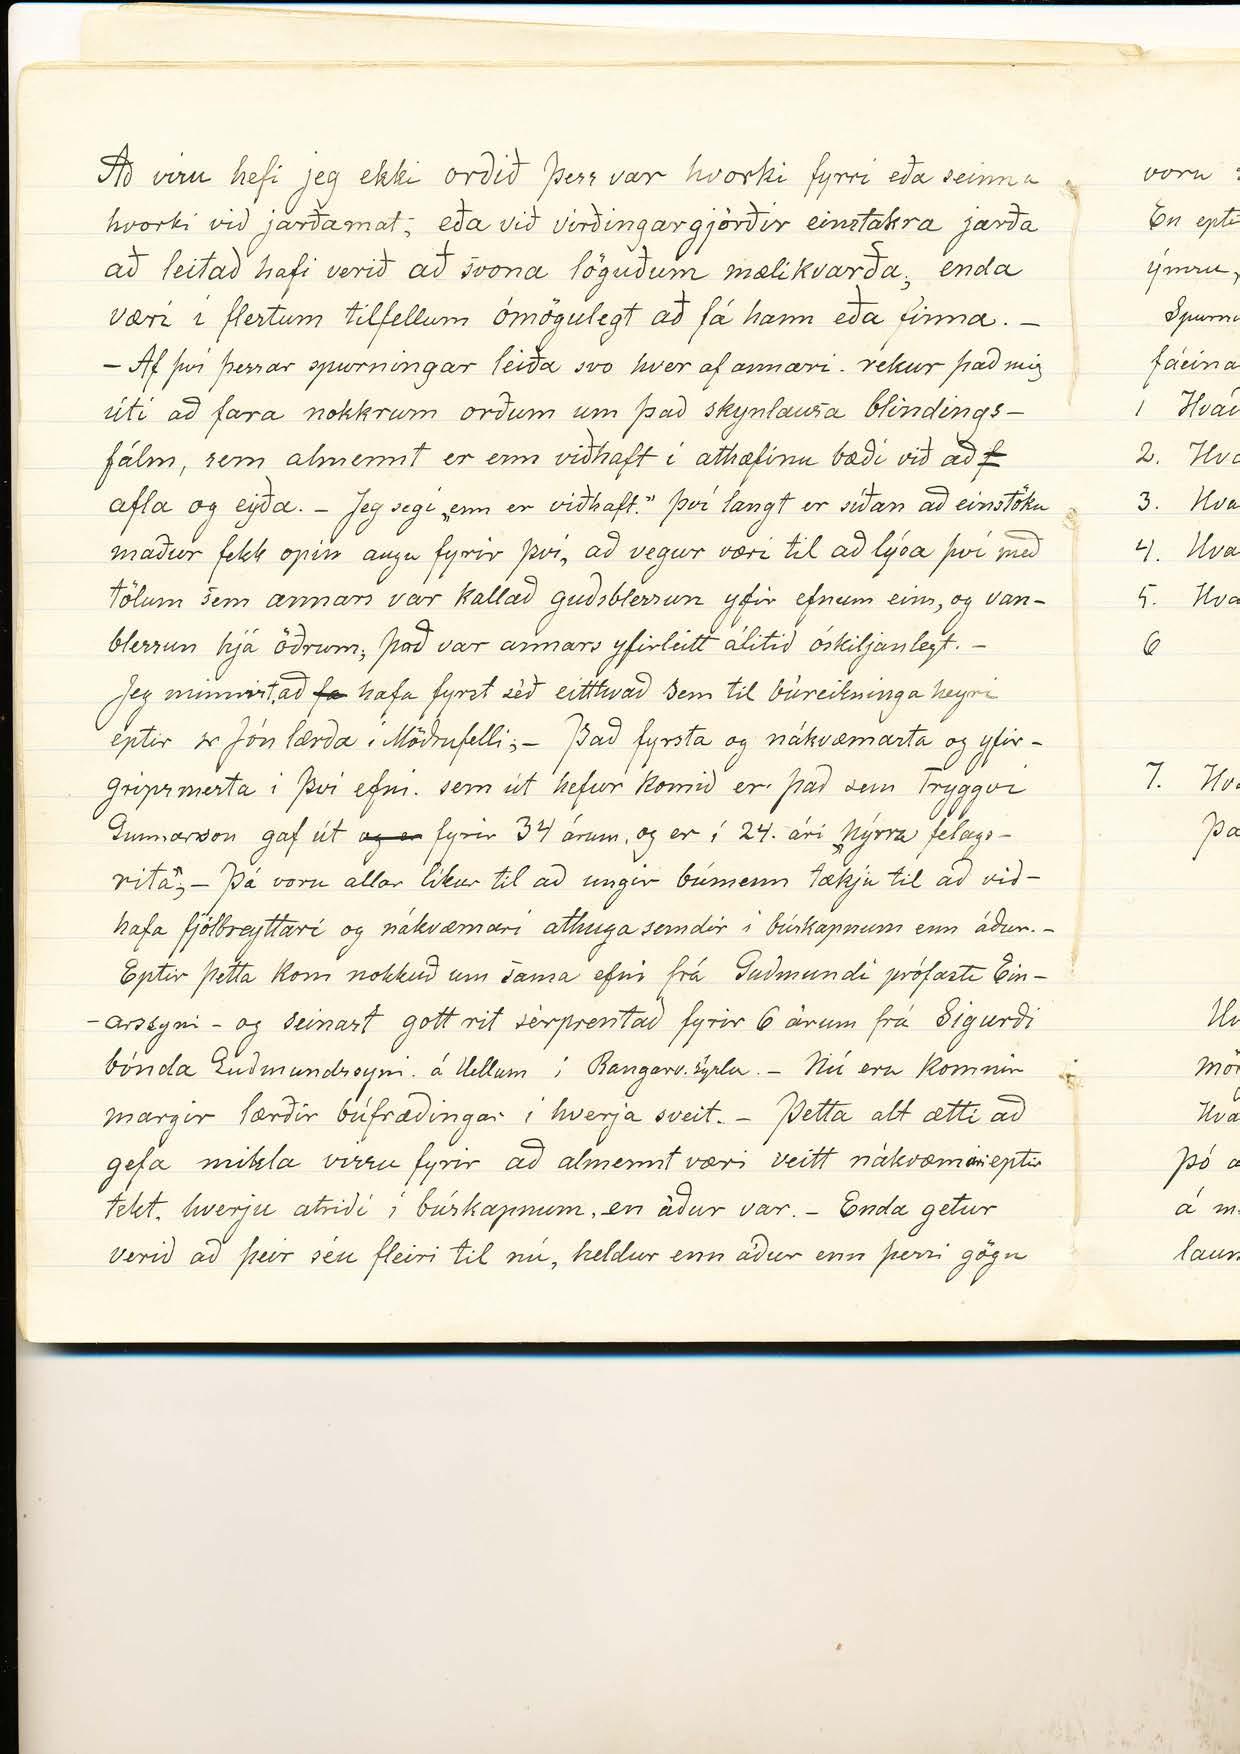 Að vísu hefi jeg ekki orðið þess var hvorki fyrri eða seinna
hvorki við jarðamat, eða við virðingargjörðir einstakra jarða
að leitað hafi verið að svona löguðum mælikvarða, enda
væri í flestum tilfellum ómögulegt að fá hann eða finna. –
– Af því þessar spurningar leiða svo hver af annari. rekur það mig
útí að fara nokkrum orðum um það skynlausa blindings-
fálm, sem almennt er enn viðhaft í athæfinu bæði við að
afla og eyða. – Jeg segi „enn er viðhaft." Því langt er síðan að einstöku
maður fekk opin augu fyrir því, að vegur væri til að lýsa því með
tölum sem annars var kallað guðsblessun yfir efnum eins, og van-
blessun hjá öðrum; það var annars yfirleitt álitið óskiljanlegt. –
Jeg minnist, að fa hafa fyrst séð eitthvað sem til búreikninga heyri
eptir sr Jón lærða í Möðrufelli; – Það fyrsta og nákvæmasta og yfir-
gripsmesta í því efni. sem út hefur komið er það sem Tryggvi
Gunnarsson gaf út og er fyrir 34 árum, og er í 24. ári „Nýrra felags-
rita"; – Þá voru allar líkur til að ungir búmenn tækju til að við-
hafa fjölbreyttari og nákvæmari athugasemdir í búskapnum enn áður. –
Eptir þetta kom nokkuð um sama efni frá Guðmundi prófasti Ein-
-arssyni – og seinast gott rit sérprentað fyrir 6 árum frá Sigurði
bónda Guðmundssyni. á Hellum í Rangarv.sýslu. – Nú eru komnir
margir lærðir búfræðingar í hverja sveit. – Þetta alt ætti að
gefa mikla vissu fyrir að almennt væri veitt nákvæmari eptir
tekt. hverju atriði í búskapnum, en áður var. – Enda getur
verið að þeir séu fleiri til nú, heldur enn áður enn þessi gögn
voru
En
ýmsu,
fáeina
1
2.
3.
4.
5.
6
7.
þó
á